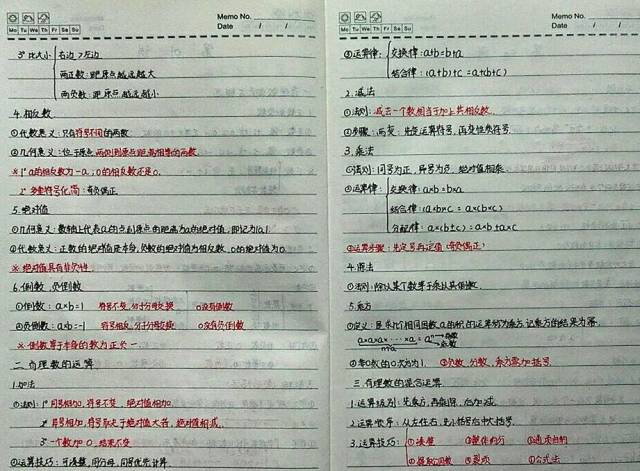 Memo No.
Date / /
Mo Tu We Th Fr Sa Su
3° 比大小 右边>左边
两正数:距原点越远越大
两负数:距原点越远越小
4.相反数
①代数意义:只有符号不同的两数
②几何意义:位于原点两侧到原点距离相等的两数
※1° a的相反数为-a;0的相反数还是0.
2° 多重符号化简:奇负偶正
5.绝对值
①几何意义:数轴上代表a的点到原点的距离为a的绝对值,即记为|a|.
②代数意义:正数的绝对值是本身,负数的绝对值为相反数,0的绝对值为0.
※ 绝对值具有非负性
6.倒数,负倒数
①倒数:a×b=1 符号不变,分子分母交换 0没有倒数
②负倒数:a×b=-1 符号相反,分子分母交换 0没有负倒数
※ 倒数等于本身的数为正负一
二.有理数的运算
1.加法
①法则:1° 同号相加,符号不变,绝对值相加.
2° 异号相加,符号取决于绝对值大者,绝对值相减.
3° 一个数加0,结果不变
②运算技巧:可凑整,同分母,同号优先计算.
Memo No.
Date / /
Mo Tu We Th Fr Sa Su
③运算律:交换律:a+b=b+a
结合律:(a+b)+c=a+(b+c)
2.减法
①法则:减去一个数相当于加上其相反数.
②步骤:两变:先变运算符号,再变性质符号.
3.乘法
①法则:同号为正,异号为负,绝对值相乘
②运算律:交换律:a×b=b×a
结合律:(a×b)×c=a×(b×c)
分配律:a×(b±c)=a×b±a×c
③运算步骤:先定号再定值(奇负偶正)
4.除法
①法则:除以某个数等于乘以其倒数.
5.乘方
①定义:是求几个相同因数a的积的运算称为乘方,记乘方的结果为幂.
a×a×a×…×a=aⁿ 指数
n个a 底数
②非0数的0次方为1. ③负数,分数,乘方需加括号.
三.有理数的混合运算
1.运算级别:先乘方,再乘除,后加减.
2.运算顺序:从左往右,先小括号后中大括号.
3.运算技巧:①凑整 ②整体约分 ③通项归纳
④提取公因数 ⑤裂项 ⑥公式法